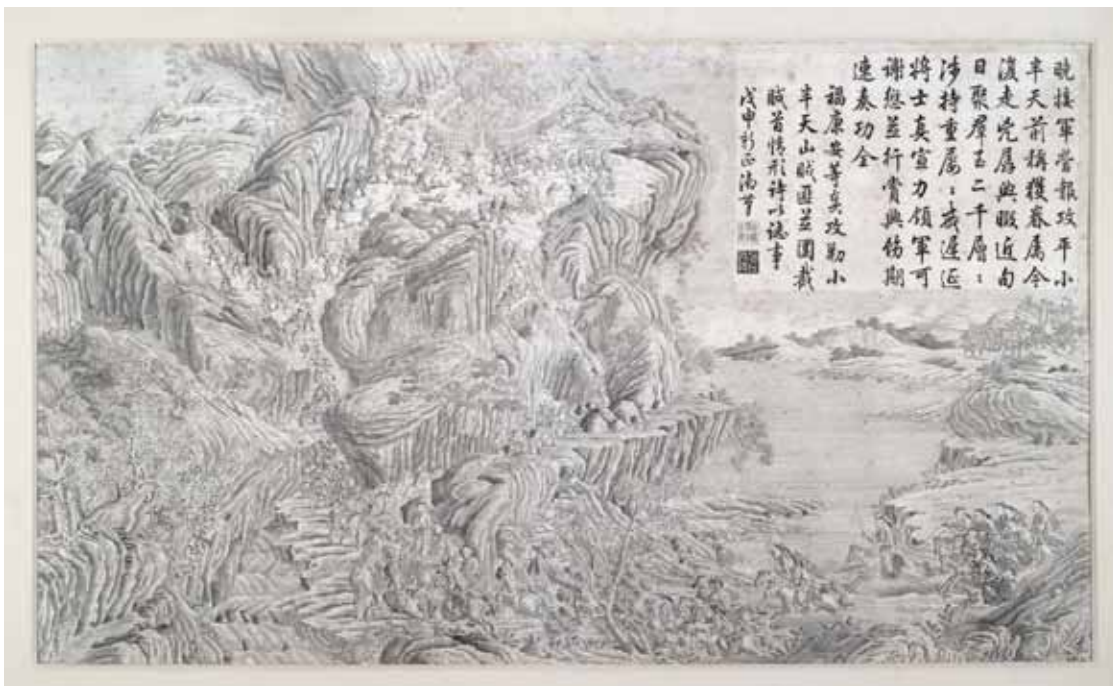 曉接軍營報攻平小
半天前稱獲眷屬今
復走兇孱與暇近旬
日聚羣至二千層〻
涉持重屢〻或遲延
將士真宣力領軍可
謝愆並行賞與飭期
速奏功全
福康安等奏攻勦小
半天山賊匪並圍截
賊首情形詩以誌事
戊申新正御筆